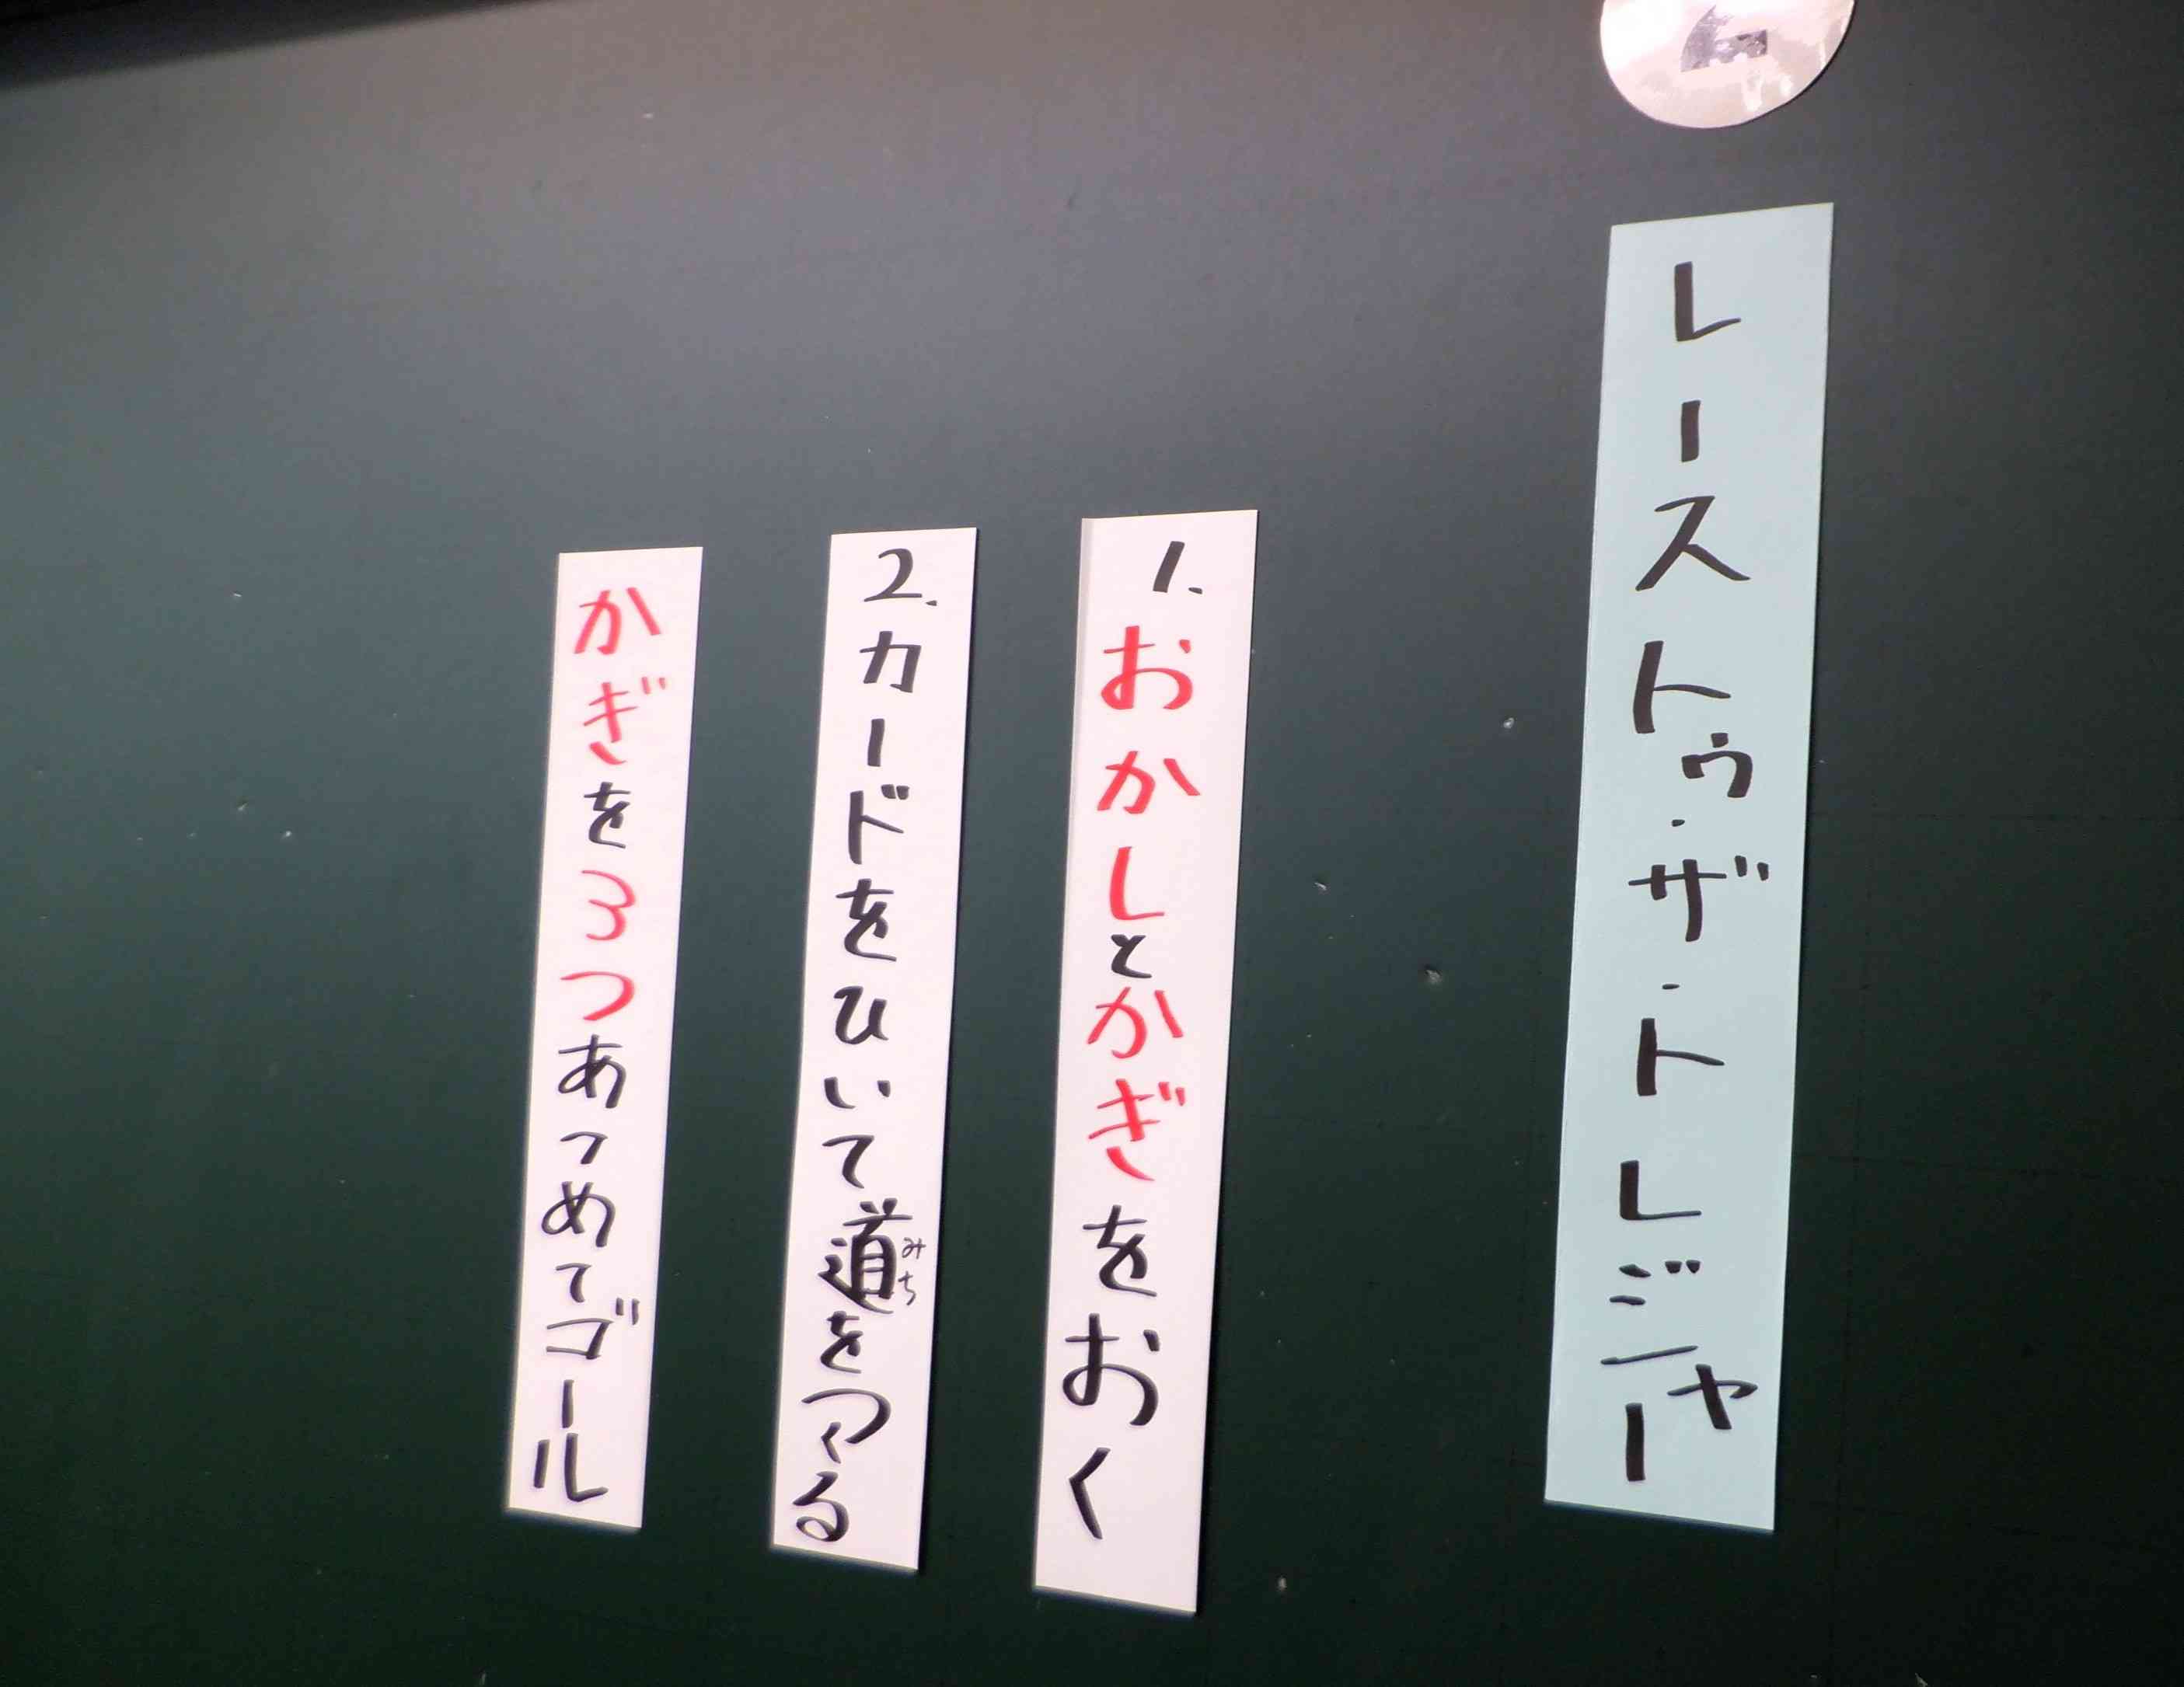 レーストゥ・ザ・トレジャー
1.おかしとかぎをおく
2.カードをひいて道をつくる
みち
かぎを3つあつめてゴール